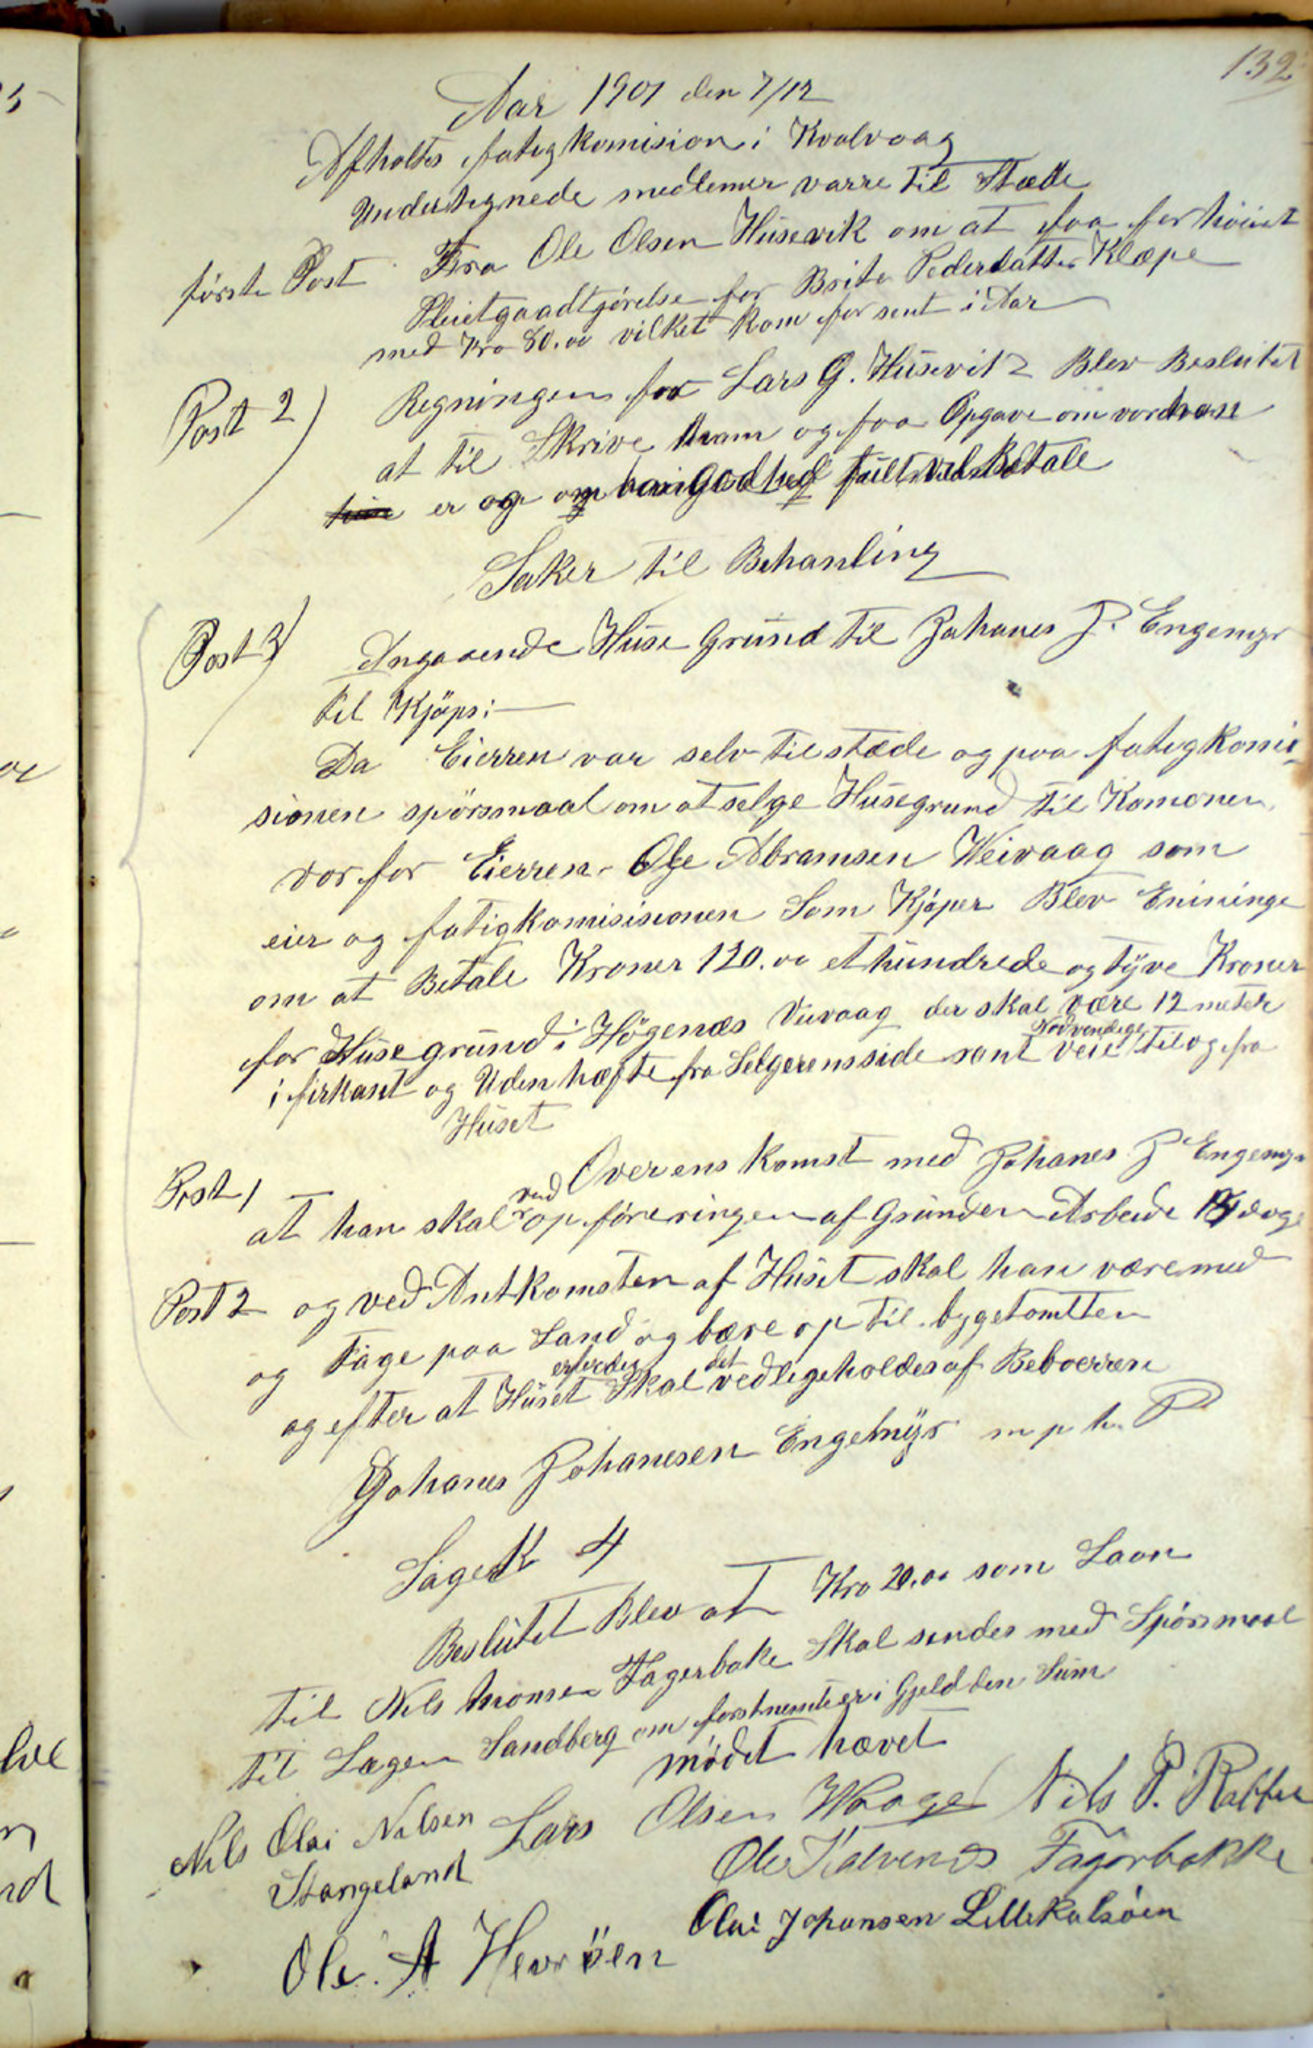 132
Aar 1901 den 7/12
Afholtes fatigkomision i Kvalvaag
Undertegnede medlemer varre til Stæde
förste Post Fra Ole Olsen Husevik om at faa forhöiet
Pleietgaadtgjörelse for Brita Pedersdatter Klæpe
med Kro 80.00 vilket kom for sent i Aar
Post 2) Regningen for Lars G. Husevik Blev Beslutet
at til Skrive ham og faa Opgave om vordan
er og om han godhed fult vil Betale
Saker til Behanling
Post 3) Angaaende Huse Grund til Johanes J. Engemyr
til Kjöps:
Da Eierren var selv tilstæde og paa fatigkomi-
sionen spörsmaal om at selge Husegrund til Komonen
vor for Eierren Ole Abramsen Weivaag som
eier og fatigkomisisionen Som Kjöper Blev Enininge
om at Betale Kroner 120.00 et hundrede og tyve Kroner
for Husegrund i Högenæs Veivaag der skal være 12 meter
i firkant og Uden hæfte fra Selgerens side samt Nödvendige veie til og fra
Huset
Post 1 Overens Komst med Johanes J Engemyr
at han skal ved opföreringen af Grunden Arbeide dage
Post 2 og ved Ankomsten af Huset skal han være med
og Tage paa Land og bære op til bygetomtten
og efter at Huset er færdig Skal det vedligeholdes af Beboerren
Johanes Johanesen Engemyr m p h. P
Sagek 4
Beslutet Blev at Kro 20.00 som Laan
til Nils Monsen Fagerbake Skal sendes med Spörsmaal
til Lægen Sandberg om forstnemte er i Gjeld den Sum
mödet hævet
Nils Olai Nilsen Lars Olsen Waage Nils P. Rabben
Stangeland Ole Halvens Fagerbakke
Olai Johansen Lillekalsöen
Ole. A Hevröen